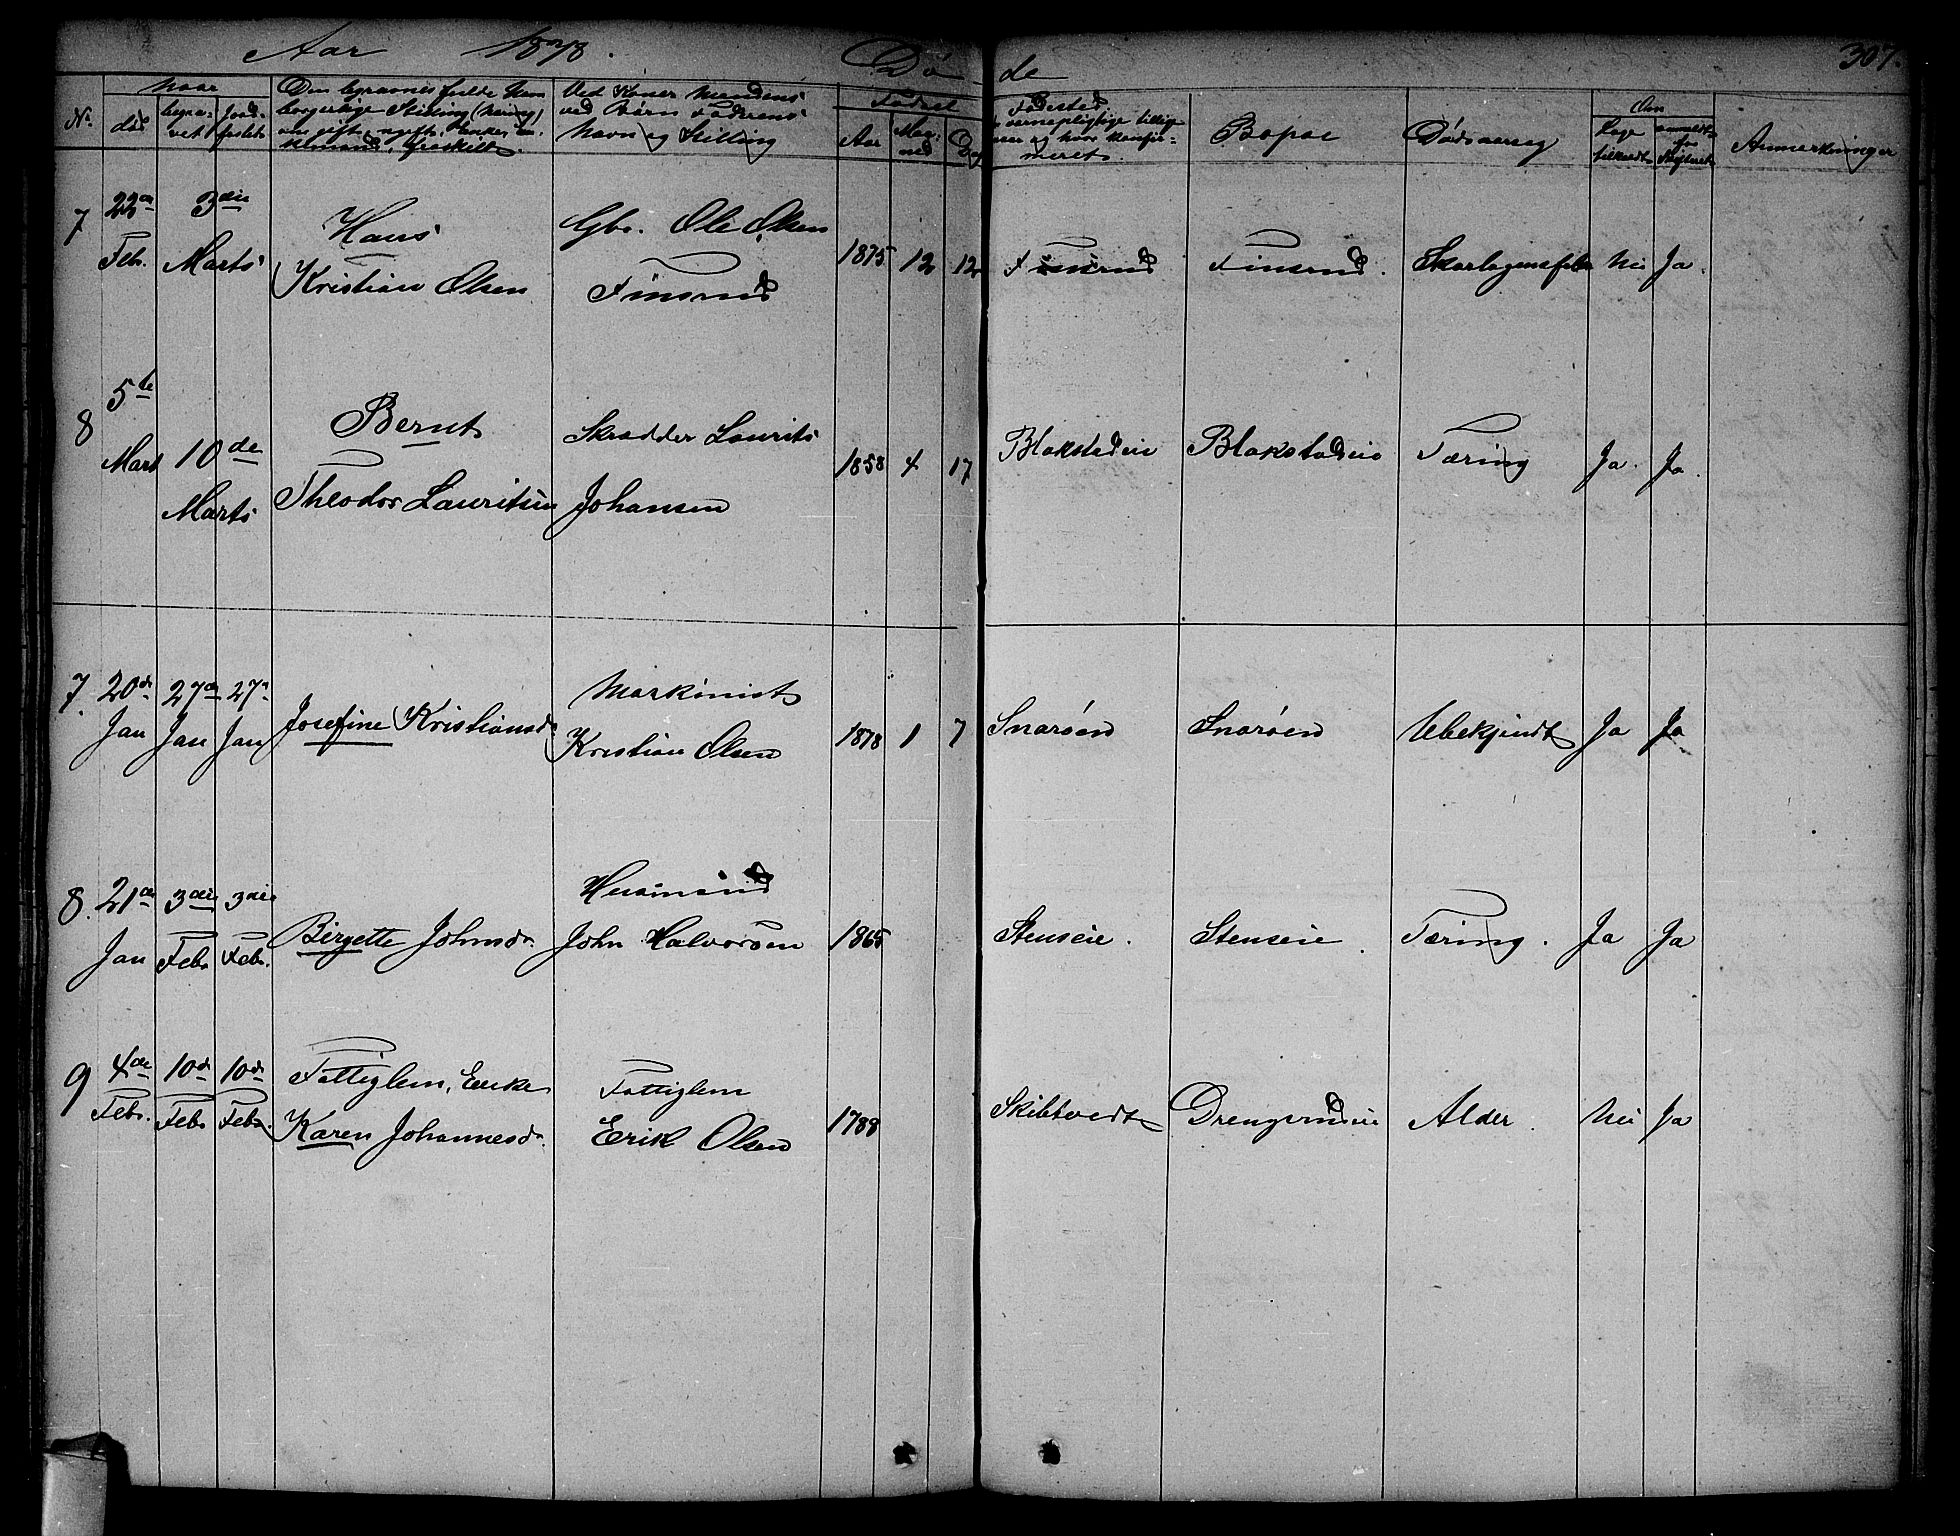 Aar 1878. Døde 307.
No. Naar Den begravnes fulde Navn Ved Koner Mandens Fødsel Fødested Bopæl Dødsaarsag Om Anmerkninger
død begravet Jordfæstet borgerlige Stilling (Næring) ved Børn Faderens Aar Maaned Dag
om gift, ugift, Enke Navn og Stilling
7 22de Febr. 3die Marts Hans Kristian Olsen Gbr. Ole Olsen Finsrud 1875 12 12 Finsrud Finsrud. Skarlagensfeber Nei Ja.
8 5te Marts 10de Marts Bernt Theodor Lauritsen Skrædder Laurits Johansen 1858 4 17 Blakstadeie Blakstadeie Tæring Ja. Ja.
7. 20de Jan 27de Jan 27de Jan Josefine Kristiansd. Maskinist Kristian Olsen 1878 1 7 Snarøen Snarøen Ubekjendt Ja Ja
8. 21de Jan 3die Febr 3die Febr. Birgette Johnsd. Husmand John Halvorsen 1865 Stenseie. Stenseie. Tæring. Ja Ja
9 4de Febr. 10de Febr 10de Febr. Fattiglem, Enke Karen Johannesd. Fattiglem Erik Olsen 1788 Skibtvedt Drengsrudeie Alder. Nei Ja